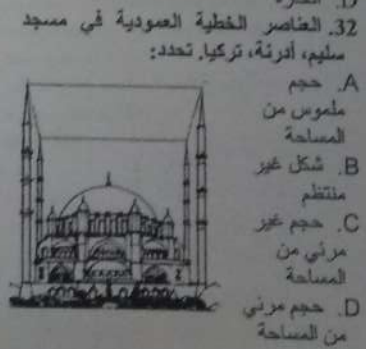 32. العناصر الخطية العمودية في مسجد
سليم، أدرنة، تركيا. تحدد:
A. حجم
ملموس من
المساحة
B. شكل غير
منتظم
C. حجم غير
مرئي من
المساحة
D. حجم مرئي
من المساحة